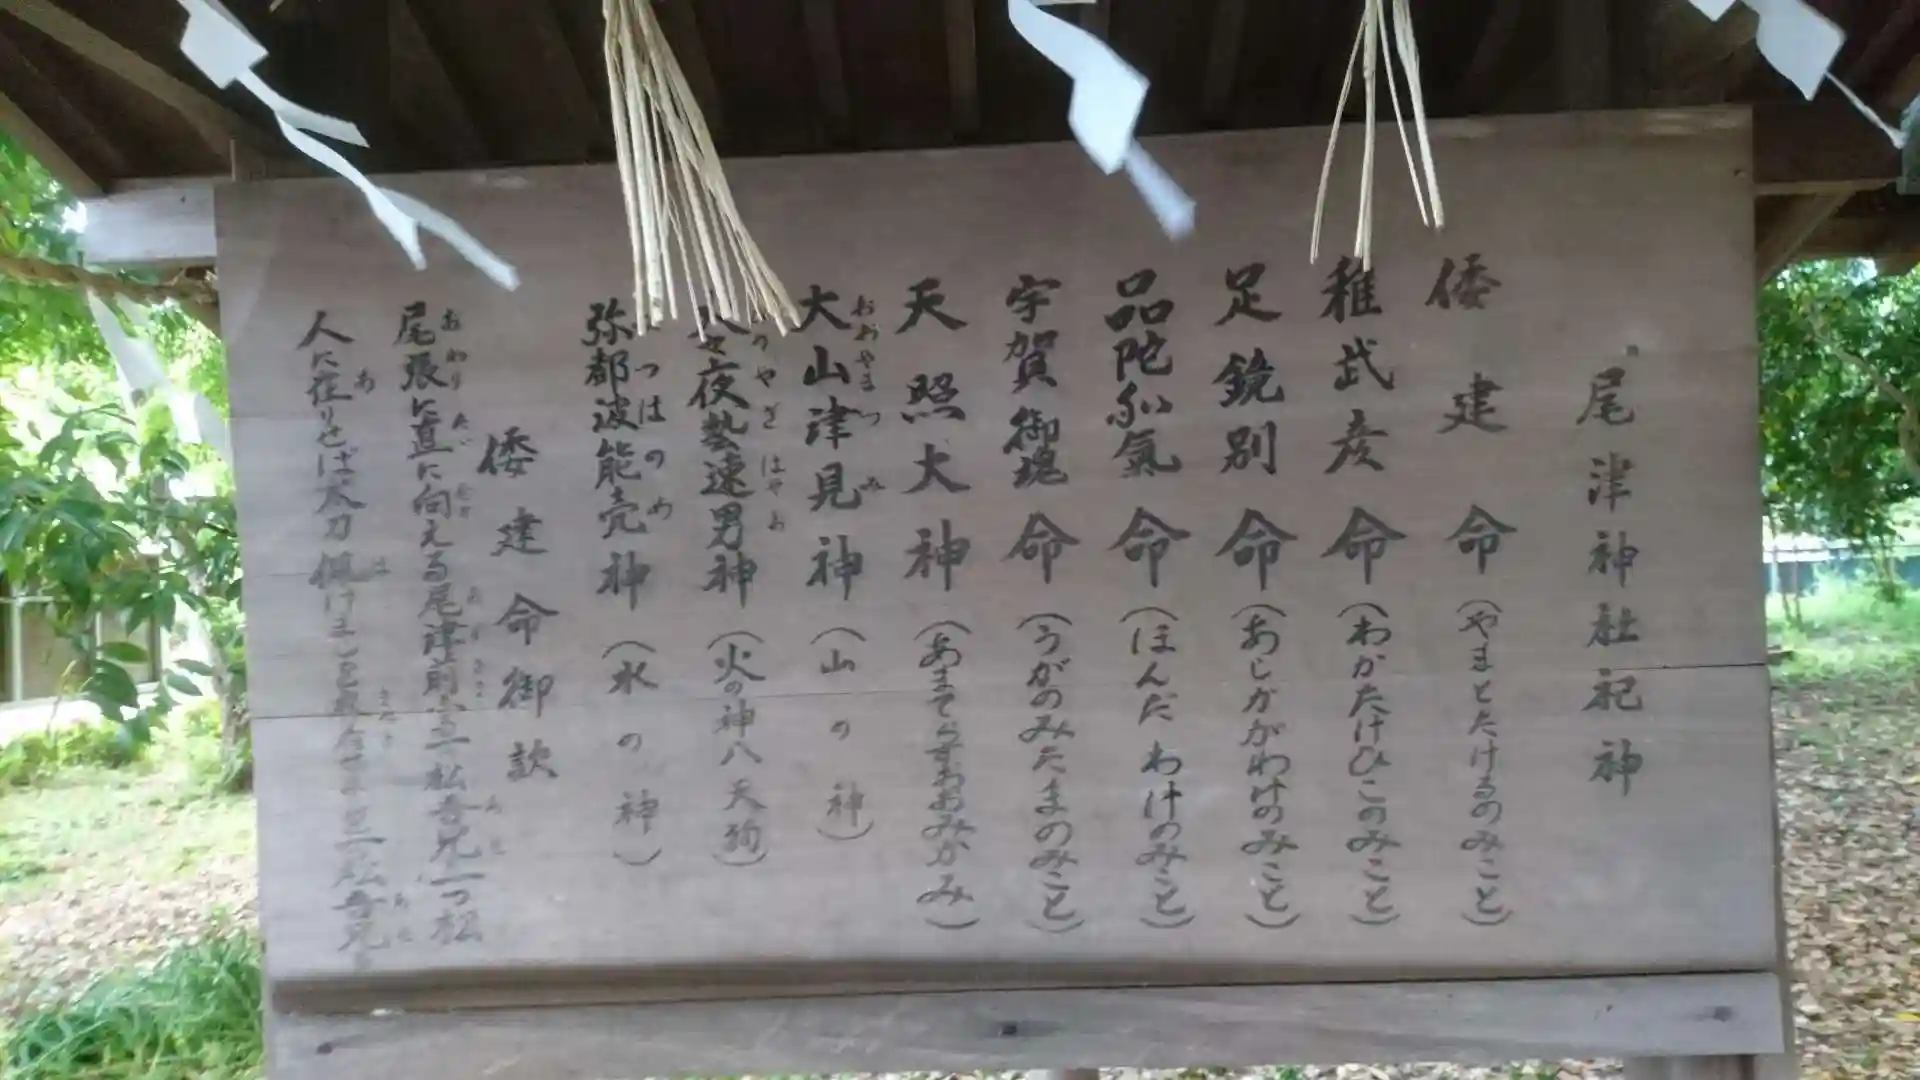 尾津神社祀神
倭建命（やまとたけるのみこと）
稚武彦命（わかたけひこのみこと）
足鏡別命（あしかがわけのみこと）
品陀和氣命（ほんだわけのみこと）
宇賀御魂命（うがのみたまのみこと）
天照大神（あまてらすおおみかみ）
大山津見神（山の神）
おおやまつみ
夜藝速男神（火の神八天狗）
のやぎはやお
弥都波能売神（水の神）
つはのめ
倭建命御歌
尾張に直に向える尾津前なる一つ松吾兄一つ松
おわり ただ むか おづさき あせ
人に在りせば太刀佩けましを
あ は